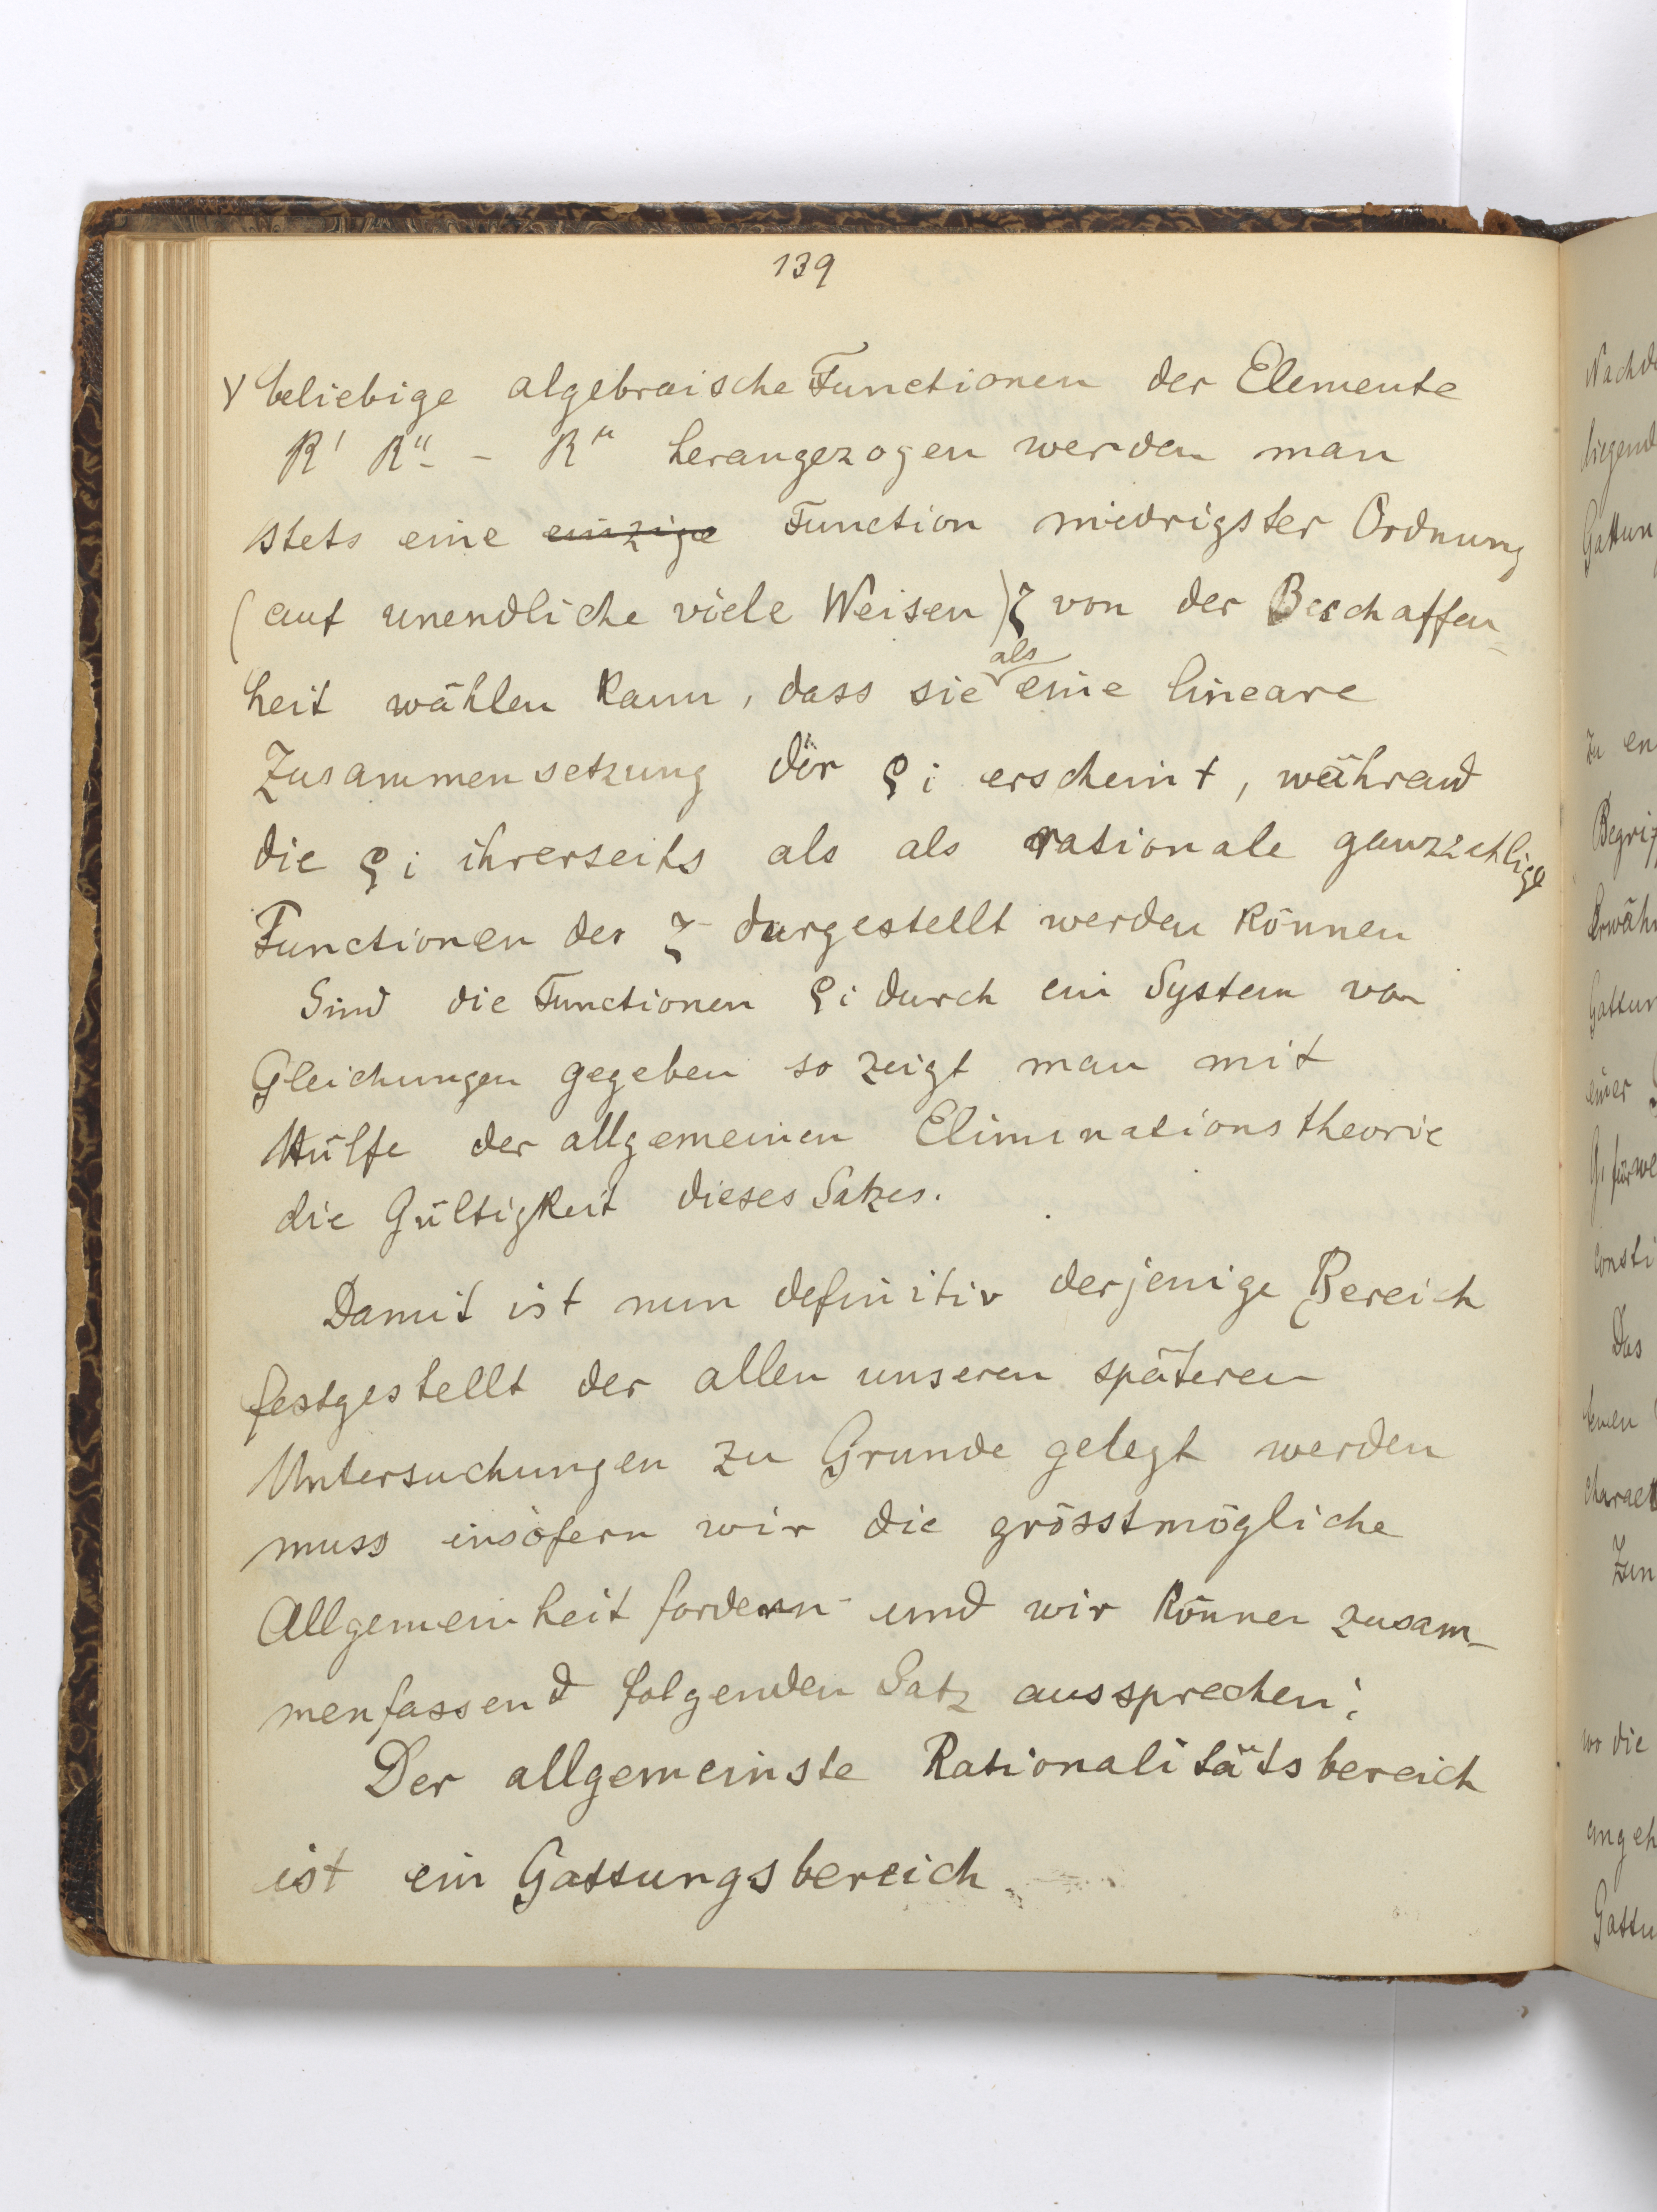 139
γ beliebige algebraische Functionen der Elemente
R' R'' - - R^μ herangezogen werden man
stets eine einzige Function niedrigster Ordnung
(auf unendliche viele Weisen) ζ von der Beschaffen-
heit wählen kann, dass sie als eine lineare
Zusammensetzung der ϱi erscheint, während
die ϱi ihrerseits als als rationale ganzzahlige
Functionen der ζ dargestellt werden können
Sind die Functionen ϱi durch ein System von
Gleichungen gegeben so zeigt man mit
Hülfe der allgemeinen Eliminationstheorie
die Gültigkeit dieses Satzes.
Damit ist nun definitiv derjenige Bereich
festgestellt der allen unseren späteren
Untersuchungen zu Grunde gelegt werden
muss insofern wir die grösstmögliche
Allgemeinheit fordern und wir können zusam-
menfassend folgenden Satz aussprechen:
Der allgemeinste Rationalitätsbereich
ist ein Gattungsbereich.